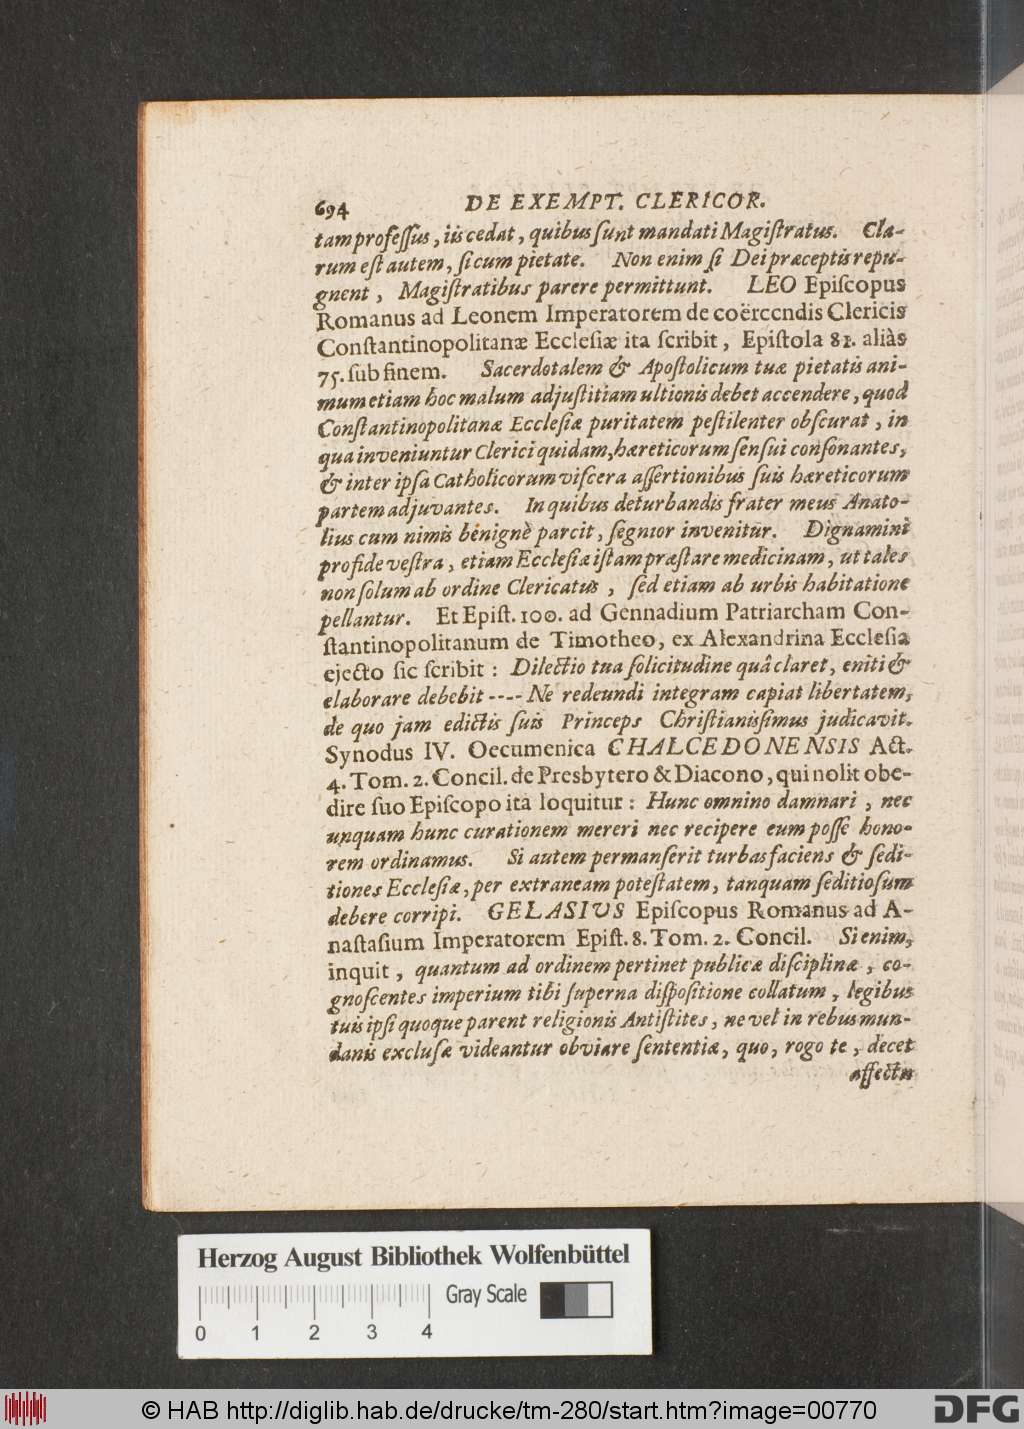 694 DE EXEMPT. CLERICOR.
tam professus, iis cedat, quibus sunt mandati Magistratus. Cla-
rum est autem, si cum pietate. Non enim si Dei præceptis repu-
gnent, Magistratibus parere permittunt. LEO Episcopus
Romanus ad Leonem Imperatorem de coërcendis Clericis
Constantinopolitanæ Ecclesiæ ita scribit, Epistola 81. aliàs
75. sub finem. Sacerdotalem & Apostolicum tuæ pietatis ani-
mum etiam hoc malum ad justitiam ultionis debet accendere, quod
Constantinopolitanæ Ecclesiæ puritatem pestilenter obscurat, in
qua inveniuntur Clerici quidam, hæreticorum sensui consonantes,
& inter ipsa Catholicorum viscera assertionibus suis hæreticorum
partem adjuvantes. In quibus deturbandis frater meus Anato-
lius cum nimis benignè parcit, segnior invenitur. Dignamini
pro fide vestra, etiam Ecclesiæ istam præstare medicinam, ut tales
non solum ab ordine Clericatus, sed etiam ab urbis habitatione
pellantur. Et Epist. 100. ad Gennadium Patriarcham Con-
stantinopolitanum de Timotheo, ex Alexandrina Ecclesia
ejecto sic scribit: Dilectio tua solicitudine quâ claret, eniti &
elaborare debebit ---- Ne redeundi integram capiat libertatem,
de quo jam edictis suis Princeps Christianissimus judicavit.
Synodus IV. Oecumenica CHALCEDONENSIS Act.
4. Tom. 2. Concil. de Presbytero & Diacono, qui nolit obe-
dire suo Episcopo ita loquitur: Hunc omnino damnari, nec
unquam hunc curationem mereri nec recipere eum posse hono-
rem ordinamus. Si autem permanserit turbas faciens & sedi-
tiones Ecclesiæ, per extraneam potestatem, tanquam seditiosum
debere corripi. GELASIUS Episcopus Romanus ad A-
nastasium Imperatorem Epist. 8. Tom. 2. Concil. Si enim,
inquit, quantum ad ordinem pertinet publicæ disciplinæ, co-
gnoscentes imperium tibi superna dispositione collatum, legibus
tuis ipsi quoque parent religionis Antistites, ne vel in rebus mun-
danis exclusæ videantur obviare sententiæ, quo, rogo te, decet
affectu
Herzog August Bibliothek Wolfenbüttel
Gray Scale
0 1 2 3 4
© HAB http://diglib.hab.de/drucke/tm-280/start.htm?image=00770
DFG